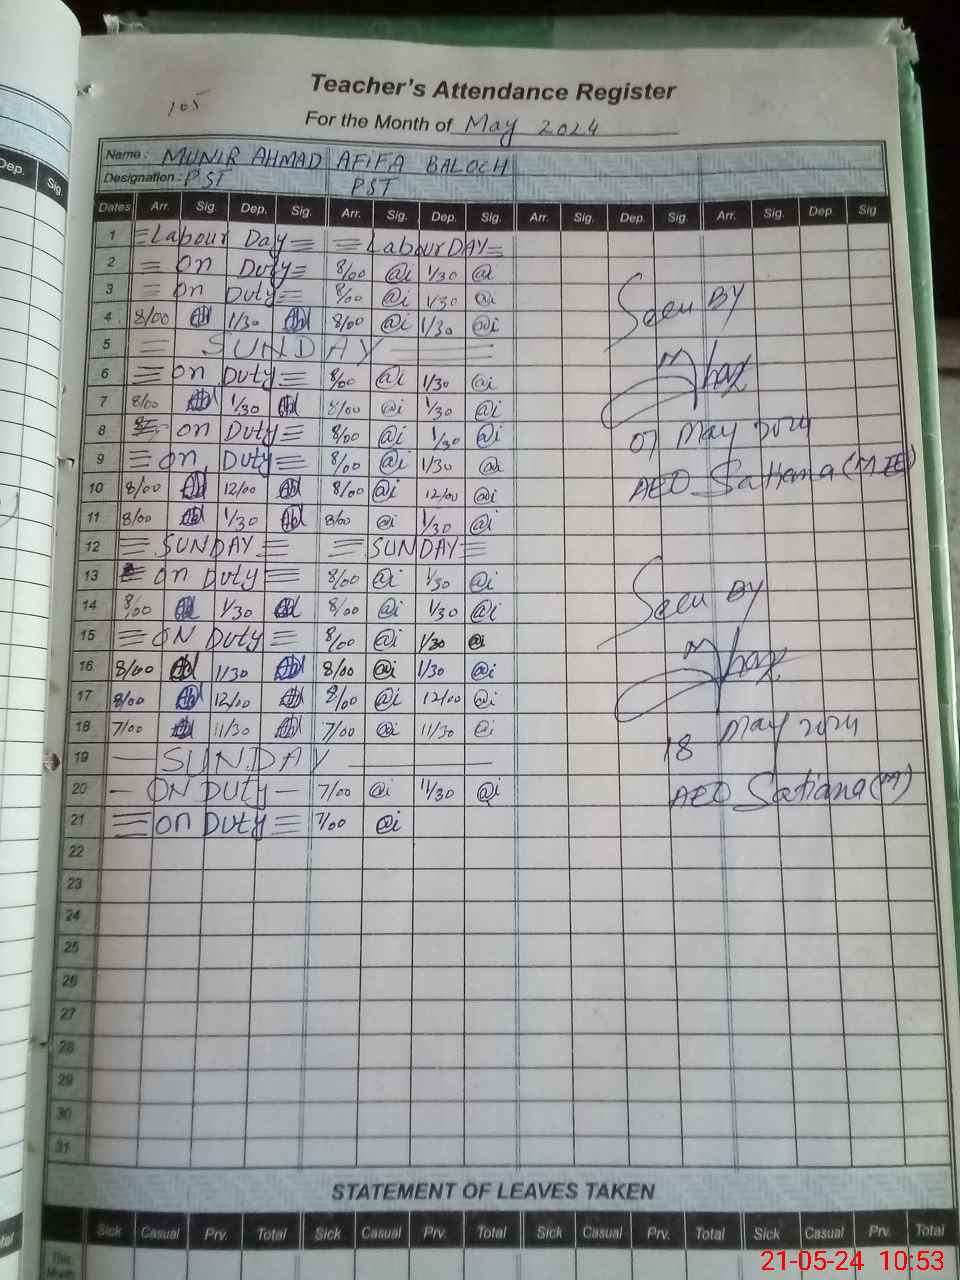 Teacher's Attendance Register
105
For the Month of May 2024
Name: MUNIR AHMAD AFIFA BALOCH
Designation: PST PST
Dep. Sig.
Dates Arr. Sig. Dep. Sig. Arr. Sig. Dep. Sig. Arr. Sig. Dep. Sig. Arr. Sig. Dep. Sig
1 Labour Day Labour DAY
2 on Duty 8/00 @i 1/30 @i
3 on Duty 8/00 @i 1/30 @i
4 8/00 1/30 8/00 @i 1/30 @i
Seen By
5 SUNDAY
6 on Duty 8/00 @i 1/30 @i
7 8/00 1/30 8/00 @i 1/30 @i
8 on Duty 8/00 @i 1/30 @i
07 May 2024
9 on Duty 8/00 @i 1/30 @i
AEO Satiana
10 8/00 12/00 8/00 @i 12/00 @i
11 8/00 1/30 8/00 @i 1/30 @i
12 SUNDAY SUNDAY
13 on Duty 8/00 @i 1/30 @i
Seen By
14 8/00 1/30 8/00 @i 1/30 @i
15 ON Duty 8/00 @i 1/30 @i
16 8/00 1/30 8/00 @i 1/30 @i
17 8/00 12/00 8/00 @i 12/00 @i
18 7/00 11/30 7/00 @i 11/30 @i
18 May 2024
19 SUNDAY
20 ON DUty 7/00 @i 11/30 @i
AEO Satiana (M)
21 on Duty 7/00 @i
22
23
24
25
26
27
28
29
30
31
STATEMENT OF LEAVES TAKEN
Sick Casual Prv. Total Sick Casual Prv. Total Sick Casual Prv. Total Sick Casual Prv. Total
This
21-05-24 10:53